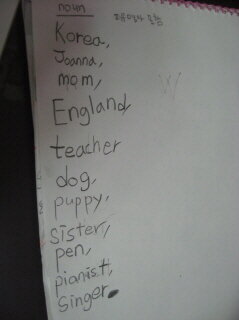 noun
Korea,
Joanna,
mom,
England,
teacher
dog,
puppy,
sister,
pen,
pianist,
singer.